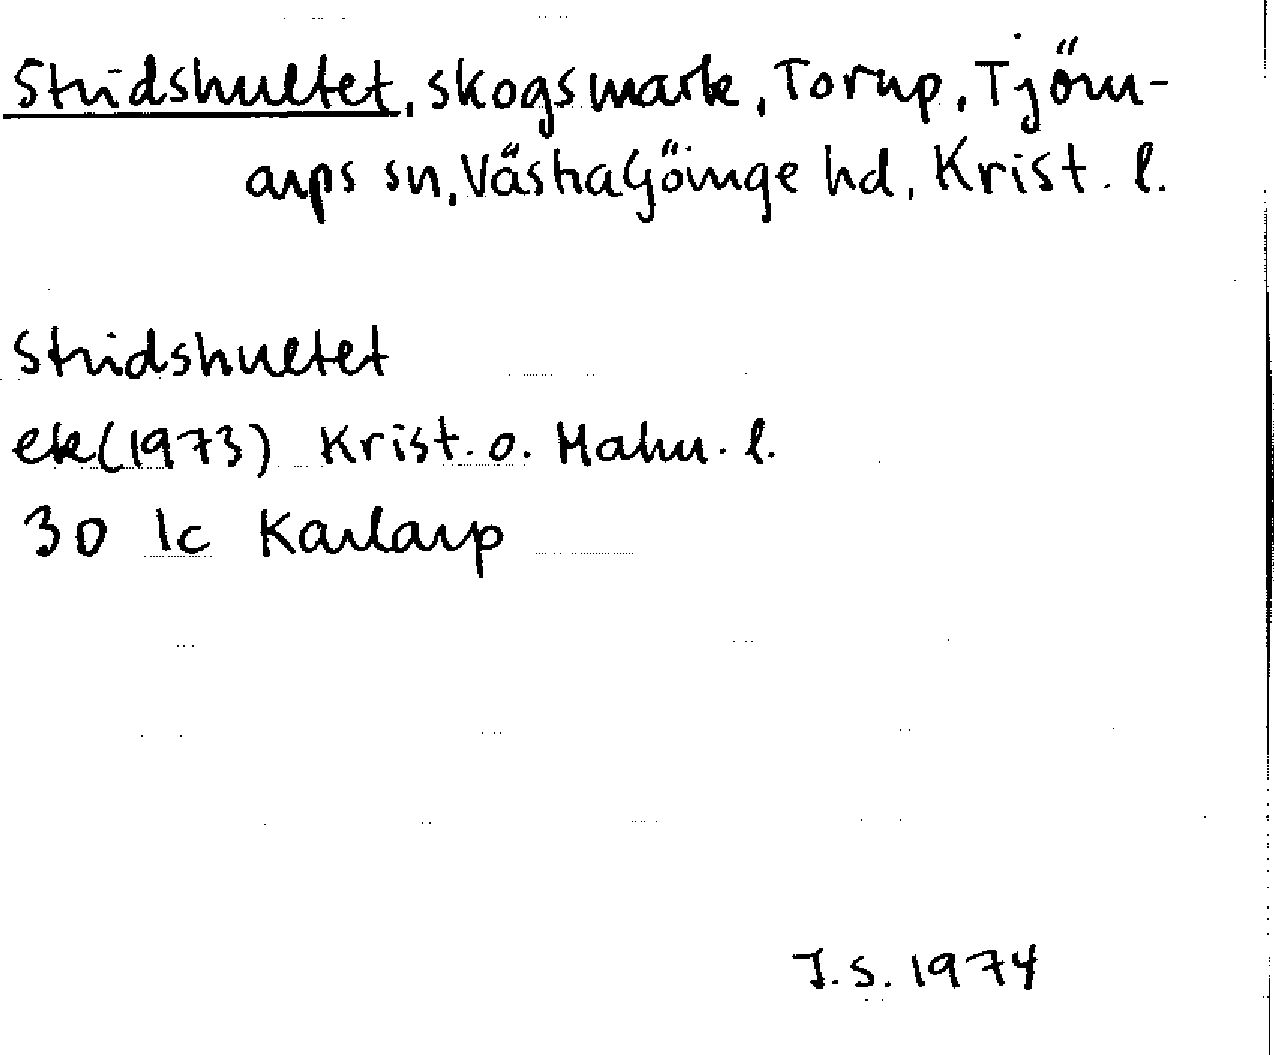 Stridshultet, skogsmark, Torup, Tjörn-
arps sn, Västra Göinge hd, Krist. l.
Stridshultet
ek (1973) Krist. o. Malm. l.
3D 1c Karlarp
J.S. 1974